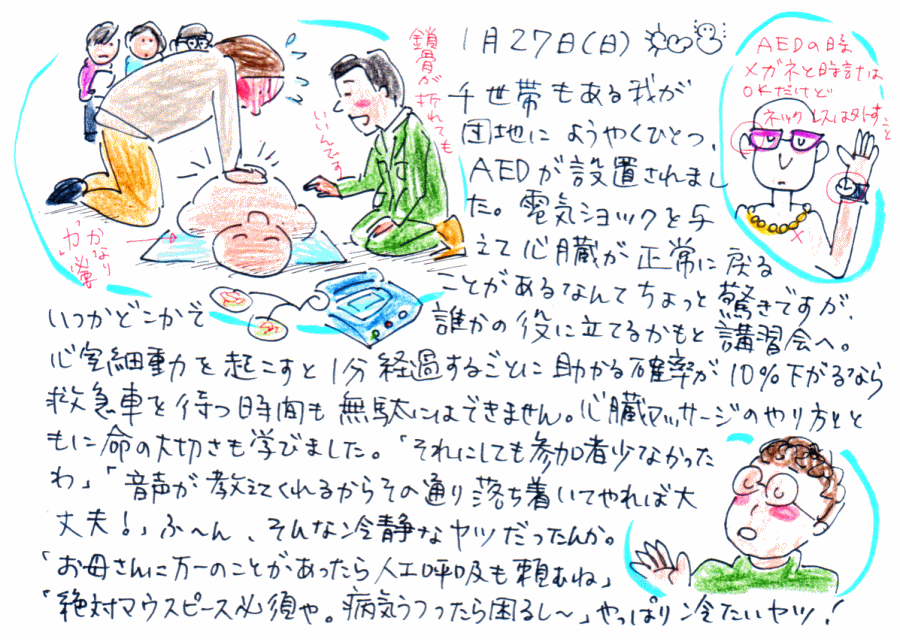 1月27日(日)
千世帯もある我が
団地にようやくひとつ、
AEDが設置されまし
た。電気ショックを与
えて心臓が正常に戻る
ことがあるなんてちょっと驚きですが、
いつかどこかで
誰かの役に立てるかもと講習会へ。
心室細動を起こすと1分経過するごとに助かる確率が10%下がるなら
救急車を待つ時間も無駄にはできません。心臓マッサージのやり方とと
もに命の大切さも学びました。「それにしても参加者少なかった
わ」「音声が教えてくれるからその通り落ち着いてやれば大
丈夫!」ふ〜ん、そんな冷静なヤツだったんか。
「お母さんに万一のことがあったら人工呼吸も頼むね」
「絶対マウスピース必須や。病気うつったら困るし〜」やっぱり冷たいヤツ!
鎖骨が折れても
いいんです
かなり
「力」必要
AEDの時
メガネと時計は
OKだけど
ネックレスははずすこと